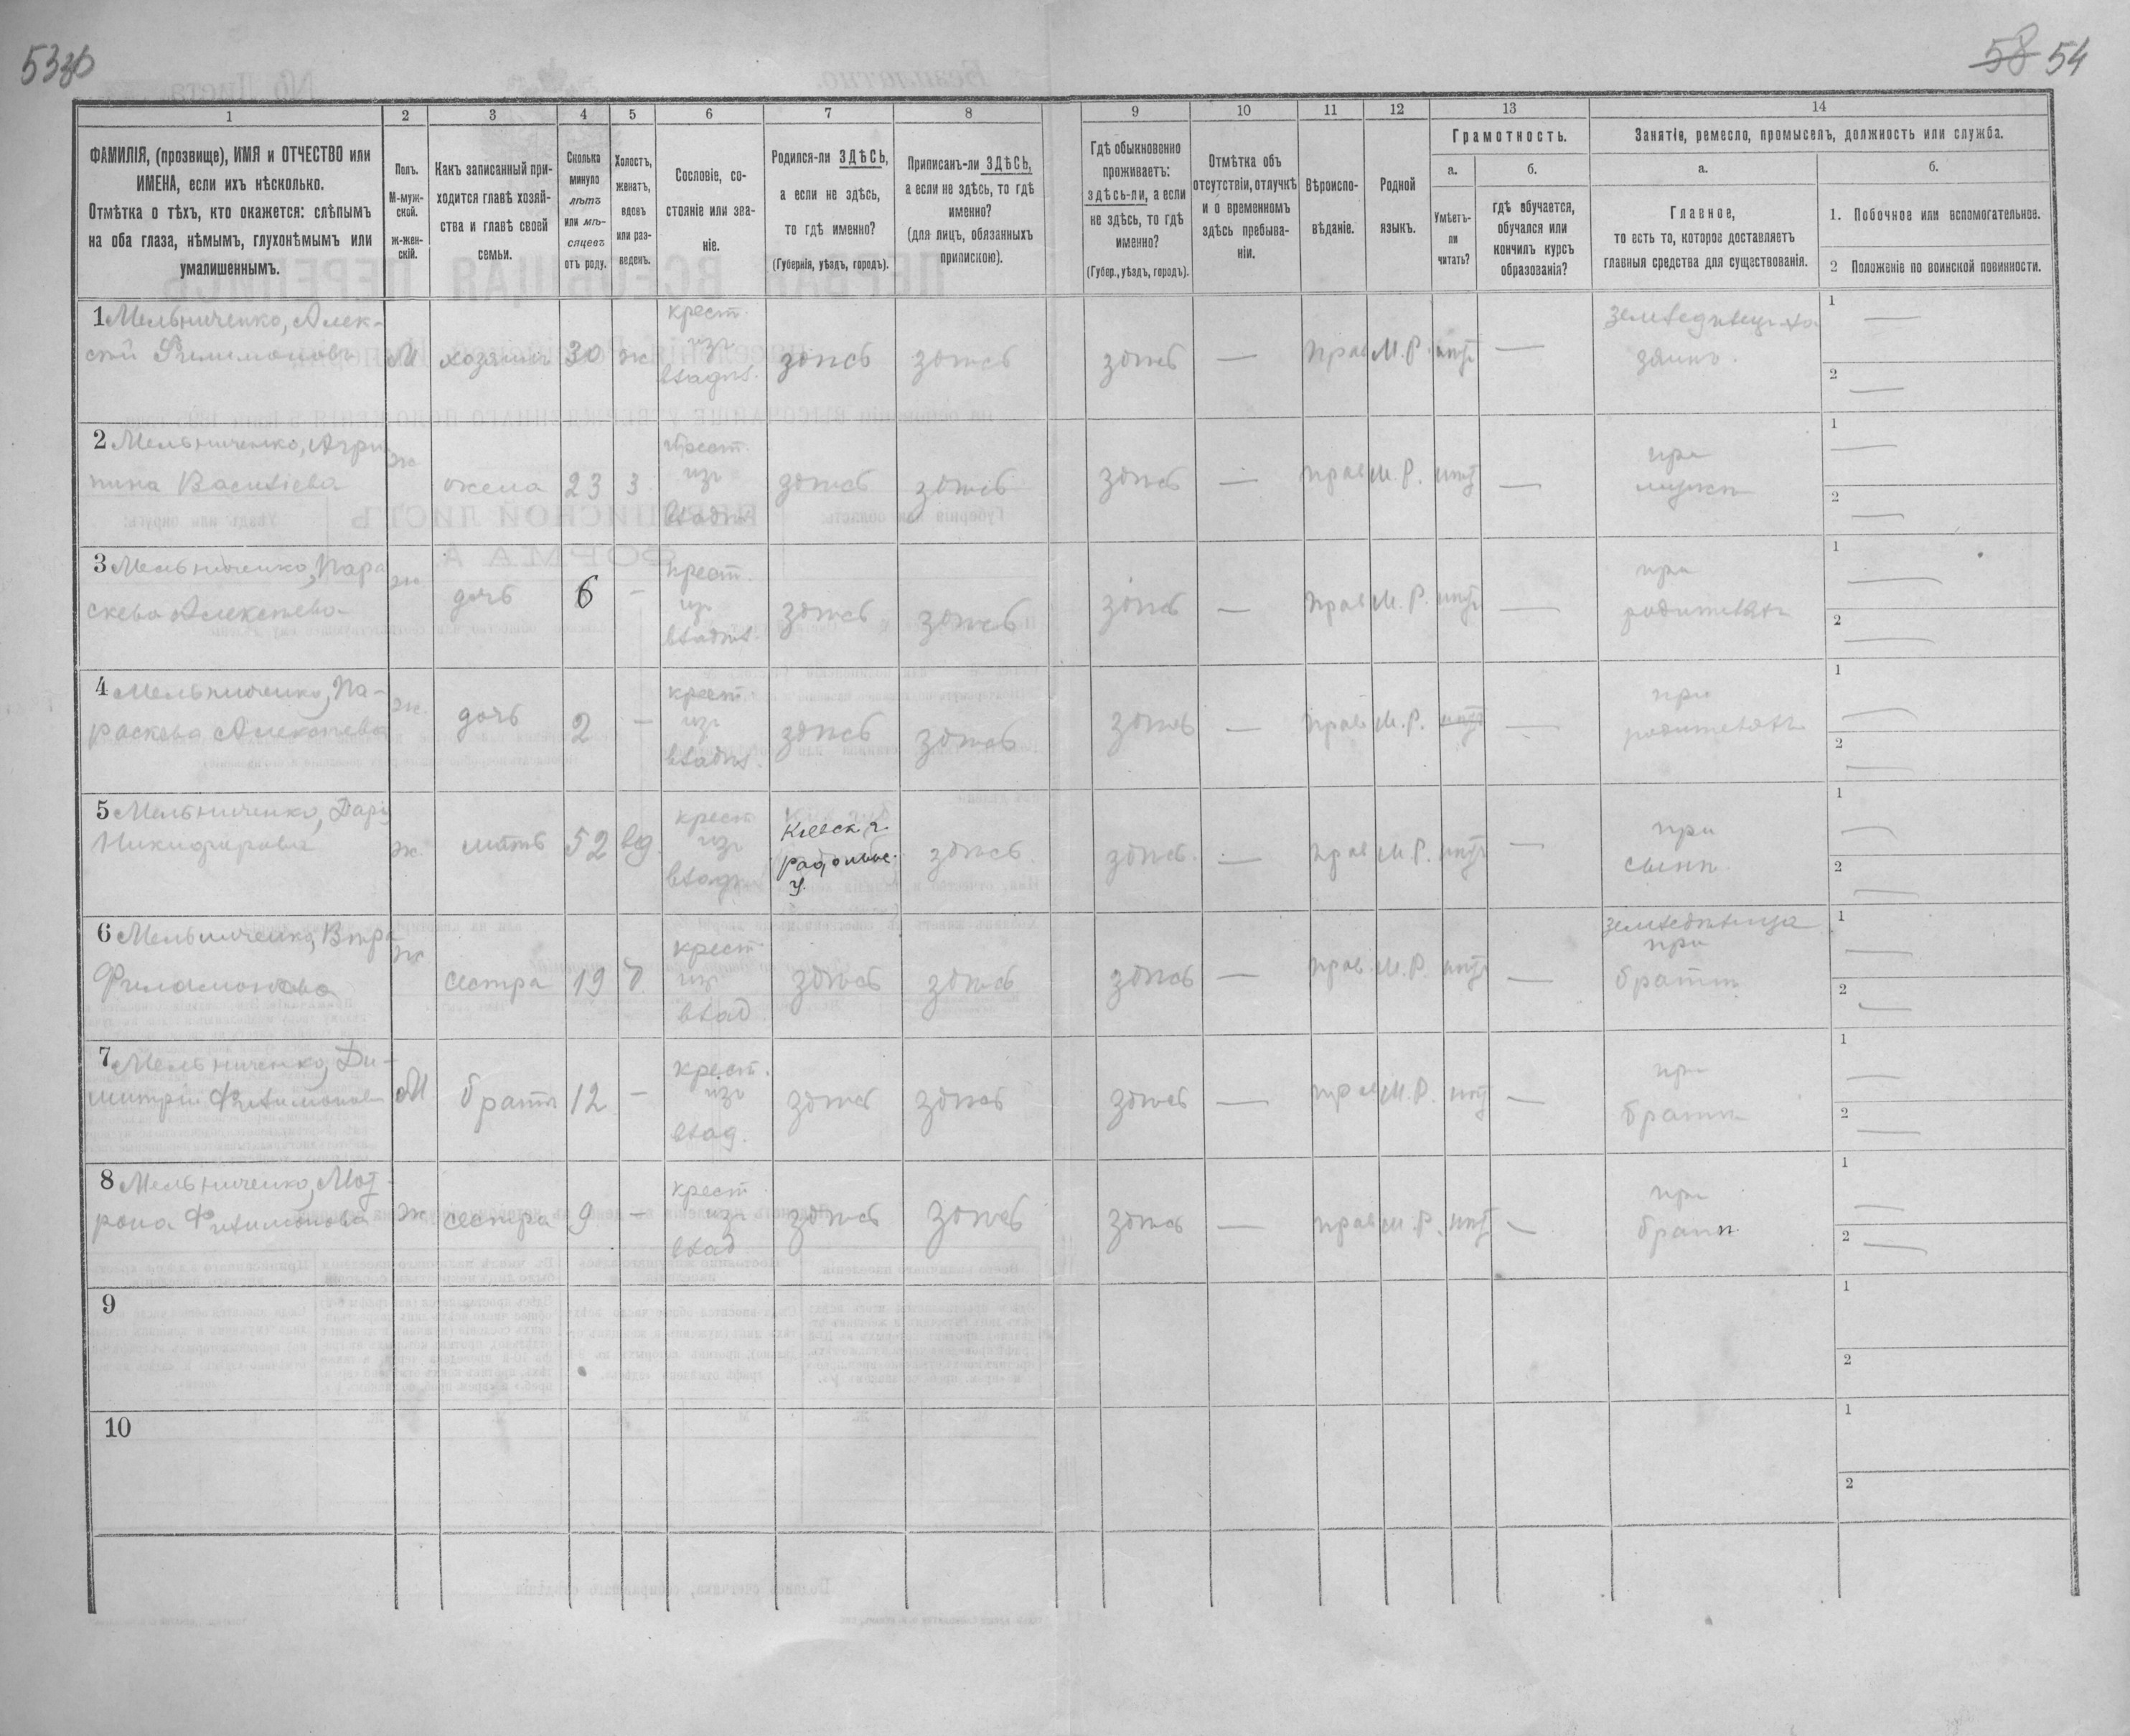 533об
58 54
1 2 3 4 5 6 7 8 9 10 11 12 13 14
ФАМИЛІЯ, (прозвище), ИМЯ и ОТЧЕСТВО или
ИМЕНА, если ихъ нѣсколько.
Отмѣтка о тѣхъ, кто окажется: слѣпымъ
на оба глаза, нѣмымъ, глухонѣмымъ или
умалишеннымъ.
Полъ.
М-муж-
ской.
ж-жен-
скій.
Какъ записанный при-
ходится главѣ хозяй-
ства и главѣ своей
семьи.
Сколько
минуло
лѣтъ
или мѣ-
сяцевъ
отъ роду.
Холостъ,
женатъ,
вдовъ
или раз-
веденъ.
Сословіе, со-
стояніе или зва-
ніе.
Родился-ли ЗДѢСЬ,
а если не здѣсь,
то гдѣ именно?
(Губернія, уѣздъ, городъ).
Приписанъ-ли ЗДѢСЬ,
а если не здѣсь, то гдѣ
именно?
(для лицъ, обязанныхъ
припискою).
Гдѣ обыкновенно
проживаетъ:
здѣсь-ли, а если
не здѣсь, то гдѣ
именно?
(Губер., уѣздъ, городъ).
Отмѣтка объ
отсутствіи, отлучкѣ
и о временномъ
здѣсь пребыва-
ніи.
Вѣроиспо-
вѣданіе.
Родной
языкъ.
Грамотность.
а.
Умѣетъ-
ли
читать?
б.
гдѣ обучается,
обучался или
кончилъ курсъ
образованія?
Занятіе, ремесло, промыселъ, должность или служба.
а.
Главное,
то есть то, которое доставляетъ
главныя средства для существованія.
б.
1. Побочное или вспомогательное.
2 Положеніе по воинской повинности.
1 Мельниченко, Алек-
сѣй Филимоновъ
М хозяинъ 30 ж
крест.
изъ
владѣл.
здѣсь здѣсь здѣсь — прав М.Р. нѣтъ —
земледѣлецъ хо-
зяинъ.
1 —
2 —
2 Мельниченко, Агри
пина Василіева
ж жена 23 з
крест.
изъ
владѣл
здѣсь здѣсь здѣсь — прав М.Р. нѣтъ —
при
мужѣ
1 —
2 —
3 Мельниченко, Пара
скева Алексѣева
ж дочь 6 —
крест.
изъ
владѣл.
здѣсь здѣсь здѣсь — прав М.Р. нѣтъ —
при
родителяхъ
1 —
2 —
4 Мельниченко, Па-
раскева Алексѣева
ж. дочь 2 —
крест.
изъ
владѣл.
здѣсь здѣсь здѣсь — прав М.Р. нѣтъ —
при
родителяхъ
1 —
2 —
5 Мельниченко, Дарія
Никифорова
ж. мать 52 вд.
крест
изъ
влад.
Кіевск г.
Радомыс.
у.
здѣсь. здѣсь. — прав М.Р. нѣтъ —
при
сынѣ
1 —
2 —
6 Мельниченко, Вѣра
Филимонова
ж сестра 19 д.
крест
изъ
влад.
здѣсь здѣсь здѣсь — прав. М.Р. нѣтъ —
земледѣлица
при
братѣ
1 —
2 —
7 Мельниченко, Ди-
митрій Филимоновъ
М братъ 12 —
крест.
изъ
влад.
здѣсь здѣсь здѣсь — прав М.Р. нѣтъ —
при
братѣ
1 —
2 —
8 Мельниченко, Мот-
рона Филимонова
ж сестра 9 —
крест
изъ
влад
здѣсь здѣсь здѣсь — прав М.Р. нѣтъ —
при
братѣ
1 —
2 —
9
1
2
10
1
2